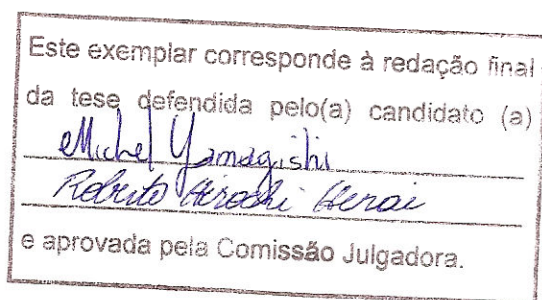 Este exemplar corresponde à redação final
da tese defendida pelo(a) candidato (a)
Michel Yamagishi
Roberto Hirochi Herai
e aprovada pela Comissão Julgadora.